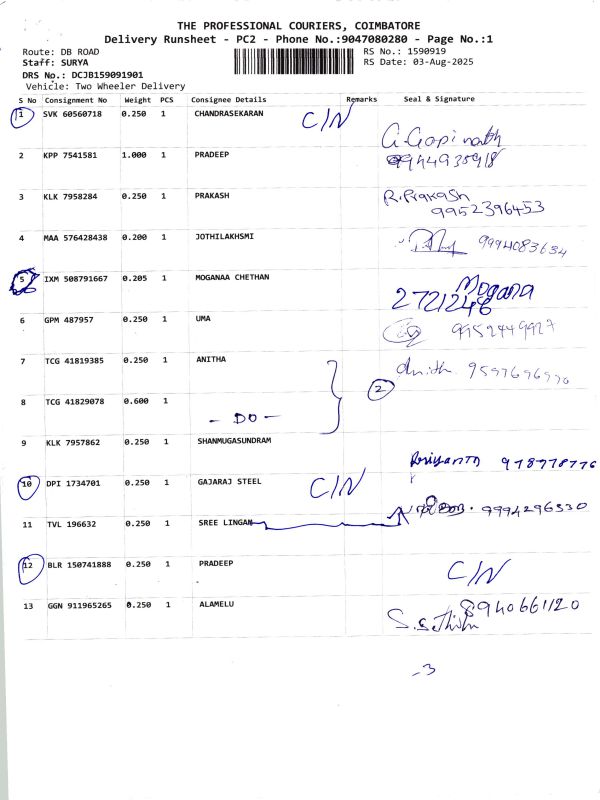 THE PROFESSIONAL COURIERS, COIMBATORE
Delivery Runsheet - PC2 - Phone No.:9047080280 - Page No.:1
Route: DB ROAD
RS No.: 1590919
Staff: SURYA
RS Date: 03-Aug-2025
DRS No.: DCJB159091901
Vehicle: Two Wheeler Delivery
S No Consignment No Weight PCS Consignee Details Remarks Seal & Signature
1 SVK 60560718 0.250 1 CHANDRASEKARAN C/N
G. Gopinath
2 KPP 7541581 1.000 1 PRADEEP
3 KLK 7958284 0.250 1 PRAKASH R. Prakash
9952396453
4 MAA 576428438 0.200 1 JOTHILAKHSMI 9994083634
5 IXM 508791667 0.205 1 MOGANAA CHETHAN Mogana
2721246
6 GPM 487957 0.250 1 UMA 9952449927
7 TCG 41819385 0.250 1 ANITHA Anitha 9597696970
2
8 TCG 41829078 0.600 1
- DO -
9 KLK 7957862 0.250 1 SHANMUGASUNDRAM
10 DPI 1734701 0.250 1 GAJARAJ STEEL C/N
11 TVL 196632 0.250 1 SREE LINGAN 9994296530
12 BLR 150741888 0.250 1 PRADEEP C/N
13 GGN 911965265 0.250 1 ALAMELU 8940661120
-3